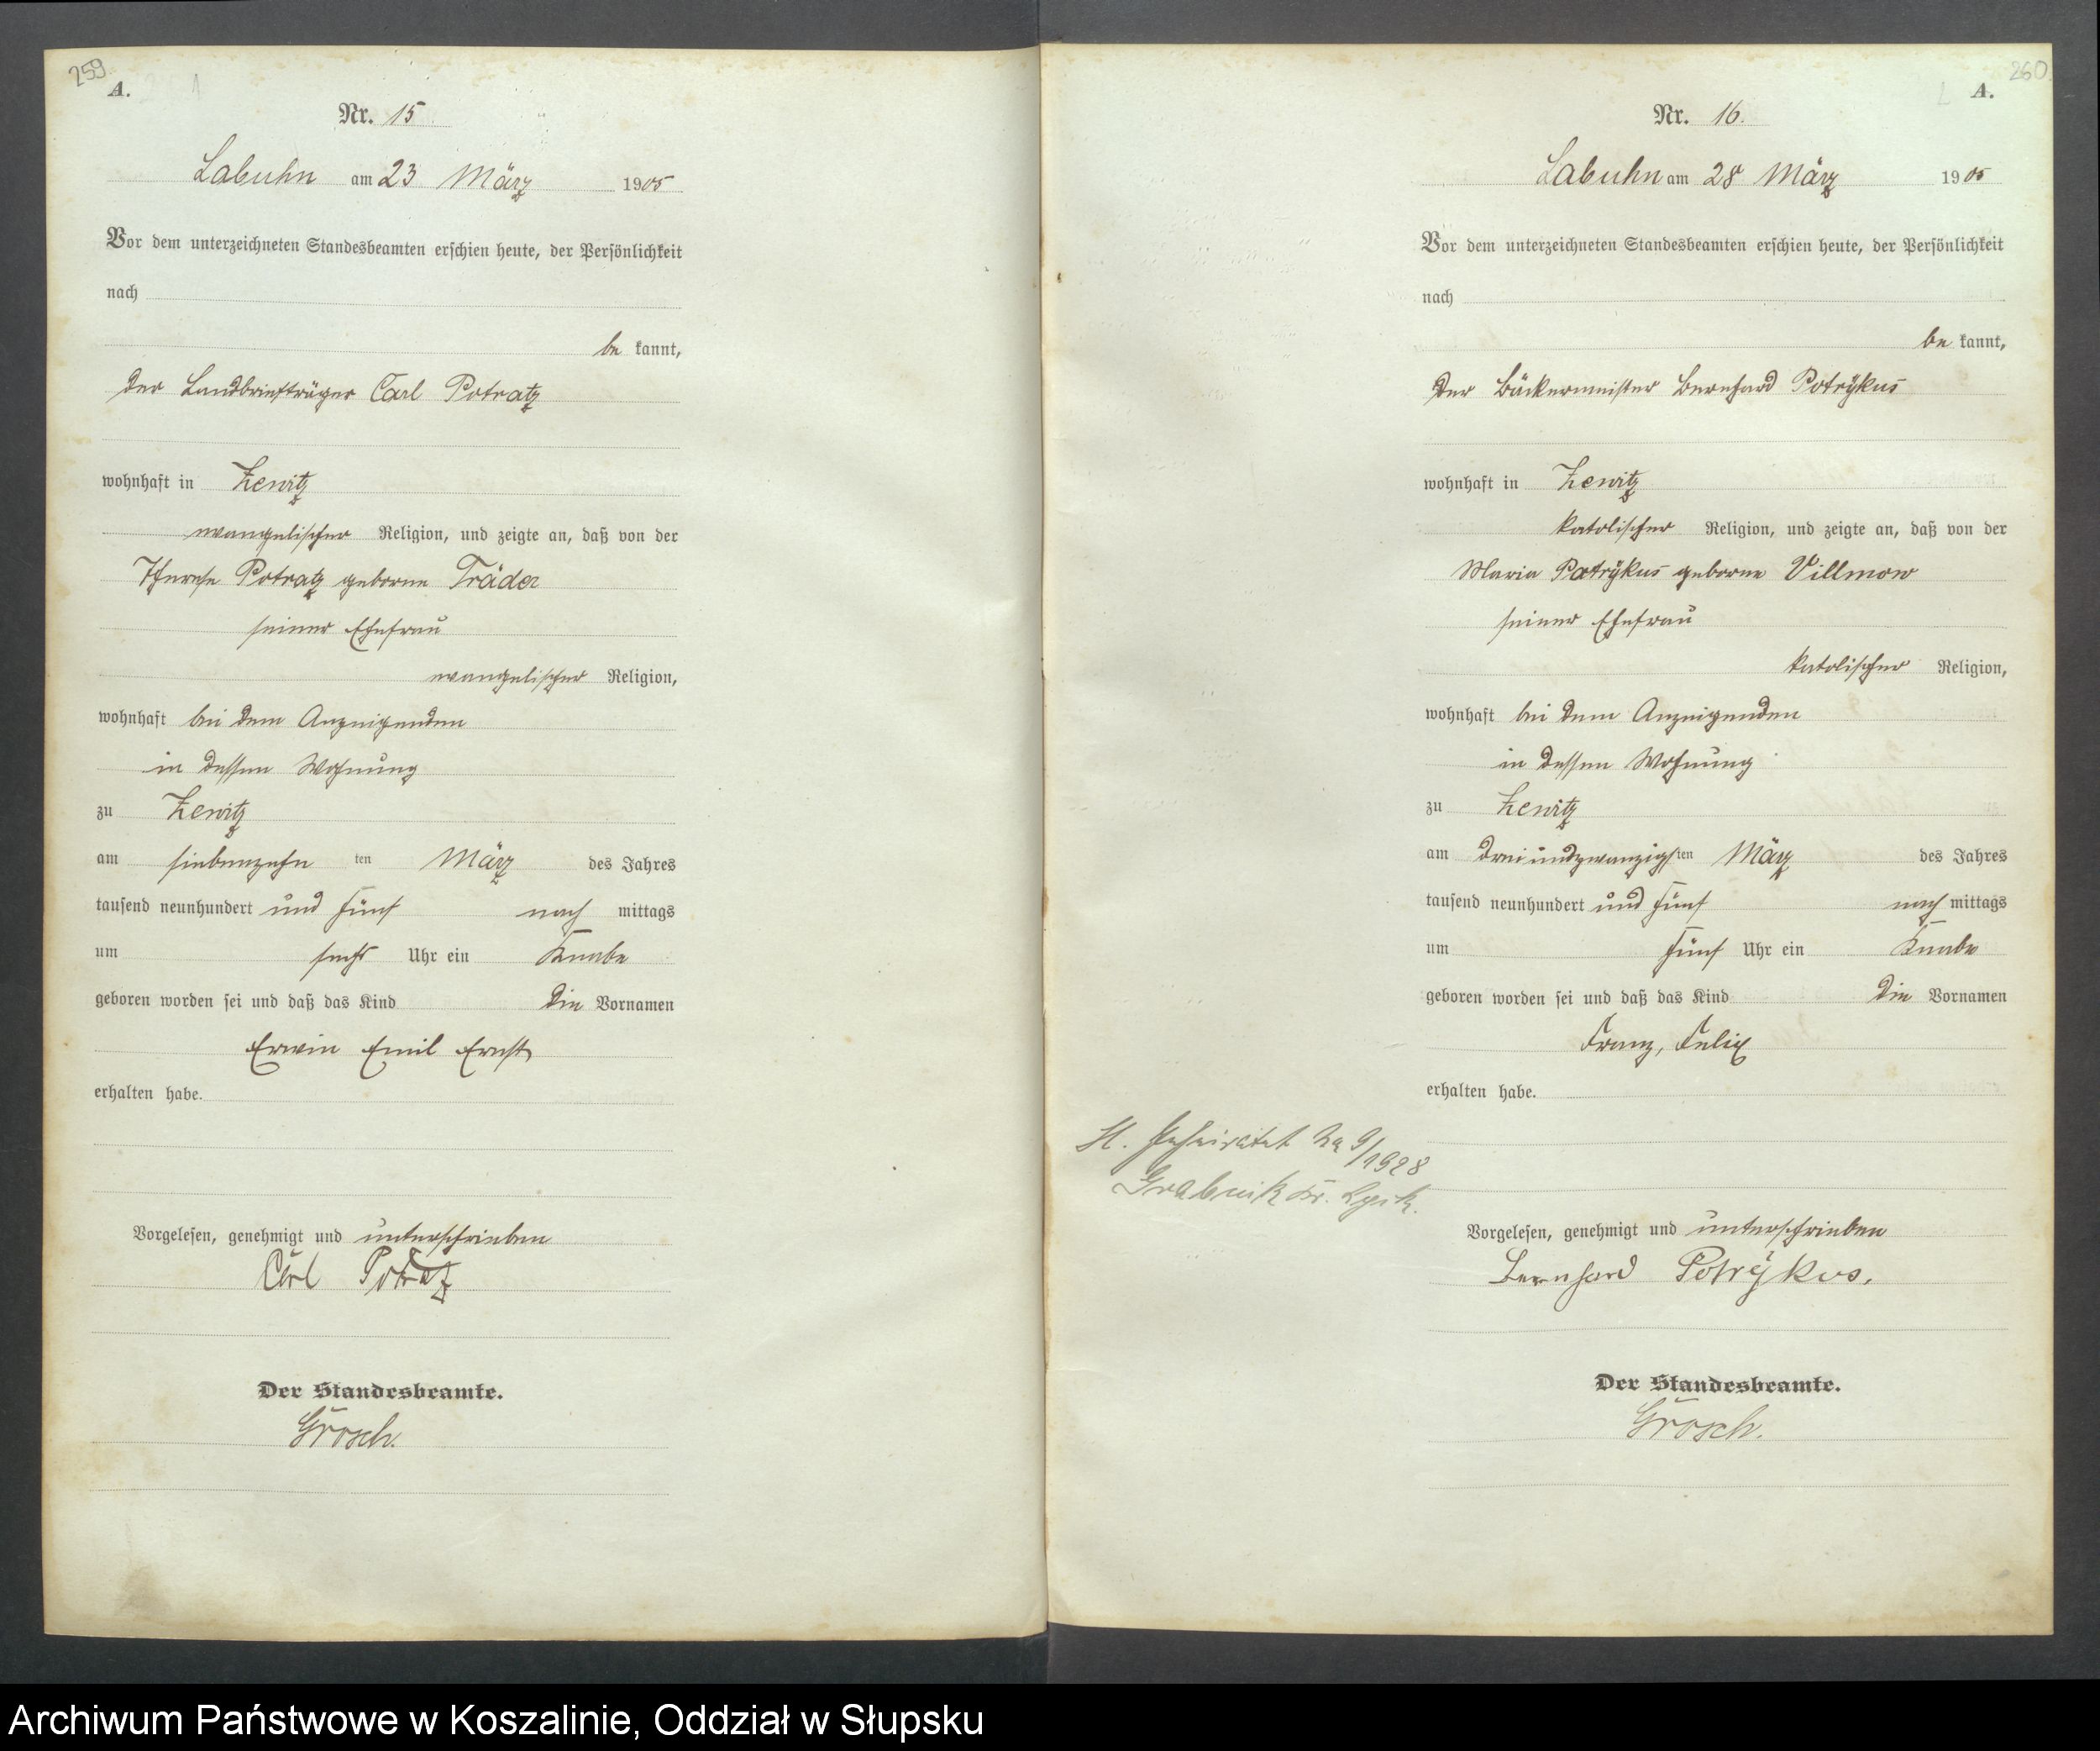 259
A.
Nr. 15
Labuhn am 23 März 1905
Vor dem unterzeichneten Standesbeamten erschien heute, der Persönlichkeit
nach
be kannt,
der Landbriefträger Carl Potratz
wohnhaft in Zewitz
evangelischer Religion, und zeigte an, daß von der
Therese Potratz geborne Träder
seiner Ehefrau
evangelischer Religion,
wohnhaft bei dem Anzeigenden
in dessen Wohnung
zu Zewitz
am siebenzehn ten März des Jahres
tausend neunhundert und fünf nach mittags
um sechs Uhr ein Knabe
geboren worden sei und daß das Kind die Vornamen
Erwin Emil Ernst
erhalten habe.
Vorgelesen, genehmigt und unterschrieben
Carl Potratz
Der Standesbeamte.
Grosch.
260
A.
Nr. 16.
Labuhn am 28 März 1905
Vor dem unterzeichneten Standesbeamten erschien heute, der Persönlichkeit
nach
be kannt,
der Bäckermeister Bernhard Potrÿkus
wohnhaft in Zewitz
katolischer Religion, und zeigte an, daß von der
Maria Potrÿkus geborne Villmow
seiner Ehefrau
katolischer Religion,
wohnhaft bei dem Anzeigenden
in dessen Wohnung
zu Zewitz
am dreiundzwanzigsten März des Jahres
tausend neunhundert und fünf nach mittags
um fünf Uhr ein Knabe
geboren worden sei und daß das Kind die Vornamen
Franz, Felix
erhalten habe.
H. Geheiratet 9/1928
Grabnik Kr. Lyck.
Vorgelesen, genehmigt und unterschrieben
Bernhard Potrÿkus.
Der Standesbeamte.
Grosch.
Archiwum Państwowe w Koszalinie, Oddział w Słupsku